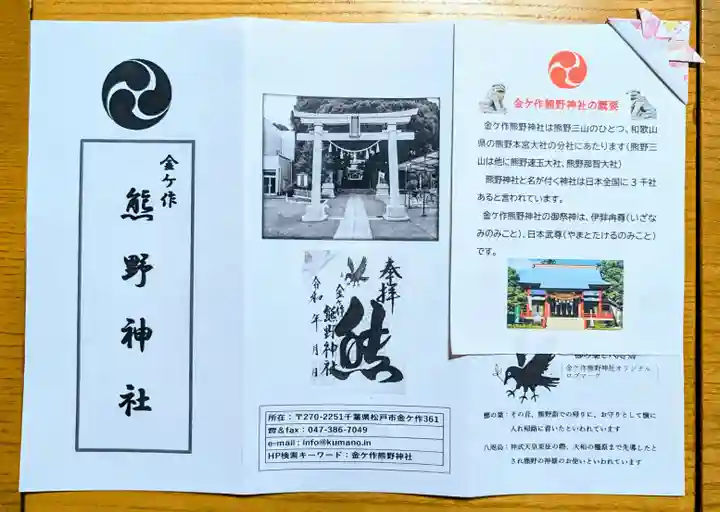 金ケ作
熊野神社
奉拝
金ケ作
熊野神社
熊
令和 年 月 日
所在：〒270-2251千葉県松戸市金ケ作361
☎&fax：047-386-7049
e-mail：info@kumano.in
HP検索キーワード：金ケ作熊野神社
金ケ作熊野神社の概要
金ケ作熊野神社は熊野三山のひとつ、和歌山
県の熊野本宮大社の分社にあたります(熊野三
山は他に熊野速玉大社、熊野那智大社)
熊野神社と名が付く神社は日本全国に３千社
あると言われています。
金ケ作熊野神社の御祭神は、伊弉冉尊(いざな
みのみこと)、日本武尊(やまとたけるのみこと)
です。
金ケ作熊野神社オリジナル
ロゴマーク
梛の葉：その昔、熊野詣での帰りに、お守りとして懐に
入れ帰路に着いたといわれています
八咫烏：神武天皇東征の際、大和の橿原まで先導したと
され熊野の神様のお使いといわれています